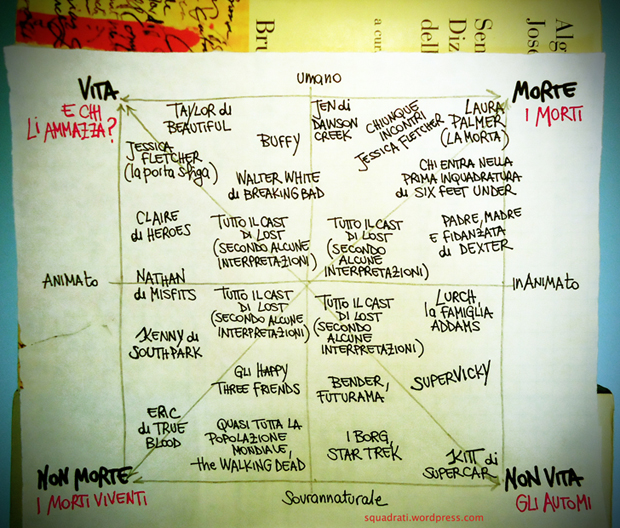 Bru
a cur
dell
Diz
Sen
Jose
Alg
umano
VITA
MORTE
E CHI
LI AMMAZZA?
I MORTI
TAYLOR di
BEAUTIFUL
JEN di
DAWSON
CREEK
CHIUNQUE
INCONTRI
JESSICA FLETCHER
LAURA
PALMER
(LA MORTA)
BUFFY
JESSICA
FLETCHER
(la porta sfiga)
WALTER WHITE
di BREAKING BAD
CHI ENTRA NELLA
PRIMA INQUADRATURA
di SIX FEET UNDER
CLAIRE
di HEROES
TUTTO IL CAST
DI LOST
(SECONDO ALCUNE
INTERPRETAZIONI)
TUTTO IL CAST
DI LOST
(SECONDO
ALCUNE
INTERPRETAZIONI)
PADRE, MADRE
E FIDANZATA
di DEXTER
ANIMATO
INANIMATO
NATHAN
di MISFITS
TUTTO IL CAST
DI LOST
(SECONDO ALCUNE
INTERPRETAZIONI)
TUTTO IL CAST
DI LOST
(SECONDO
ALCUNE
INTERPRETAZIONI)
LURCH
la FAMIGLIA
ADDAMS
KENNY di
SOUTHPARK
GLI HAPPY
THREE FRIENDS
BENDER,
FUTURAMA
SUPERVICKY
ERIC
di TRUE
BLOOD
QUASI TUTTA LA
POPOLAZIONE
MONDIALE,
the WALKING DEAD
I BORG,
STAR TREK
KITT di
SUPERCAR
NON MORTE
NON VITA
I MORTI VIVENTI
GLI AUTOMI
Sovrannaturale
squadrati.wordpress.com